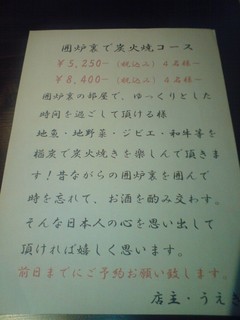 囲炉裏で炭火焼コース
¥5,250-(税込み)4名様～
¥8,400-(税込み)2名様～
囲炉裏の部屋で、ゆっくりとした
時間を過ごして頂ける様
地魚・地野菜・ジビエ・和牛等を
稲炭で炭火焼きを楽しんで頂きま
す!昔ながらの囲炉裏を囲んで
時を忘れて、お酒を酌み交わす。
そんな日本人の心を思い出して
頂ければ嬉しく思います。
前日までにご予約お願い致します。
店主・うえき